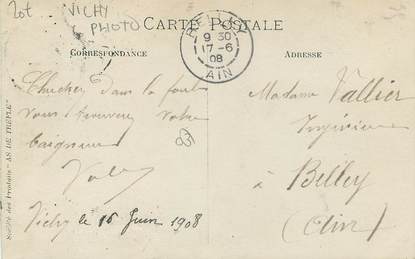 Lot VICHY
PHOTO
CARTE POSTALE
CORRESPONDANCE
ADRESSE
BELLEY
9 30
17-6
08
AIN
Cherchez dans la foule
vous trouverez votre
baigneur
Vichy le 16 Juin 1908
Madame Vallier
Ingénieur
à Belley
(Ain)
Société des Produits "AS DE TREFLE"